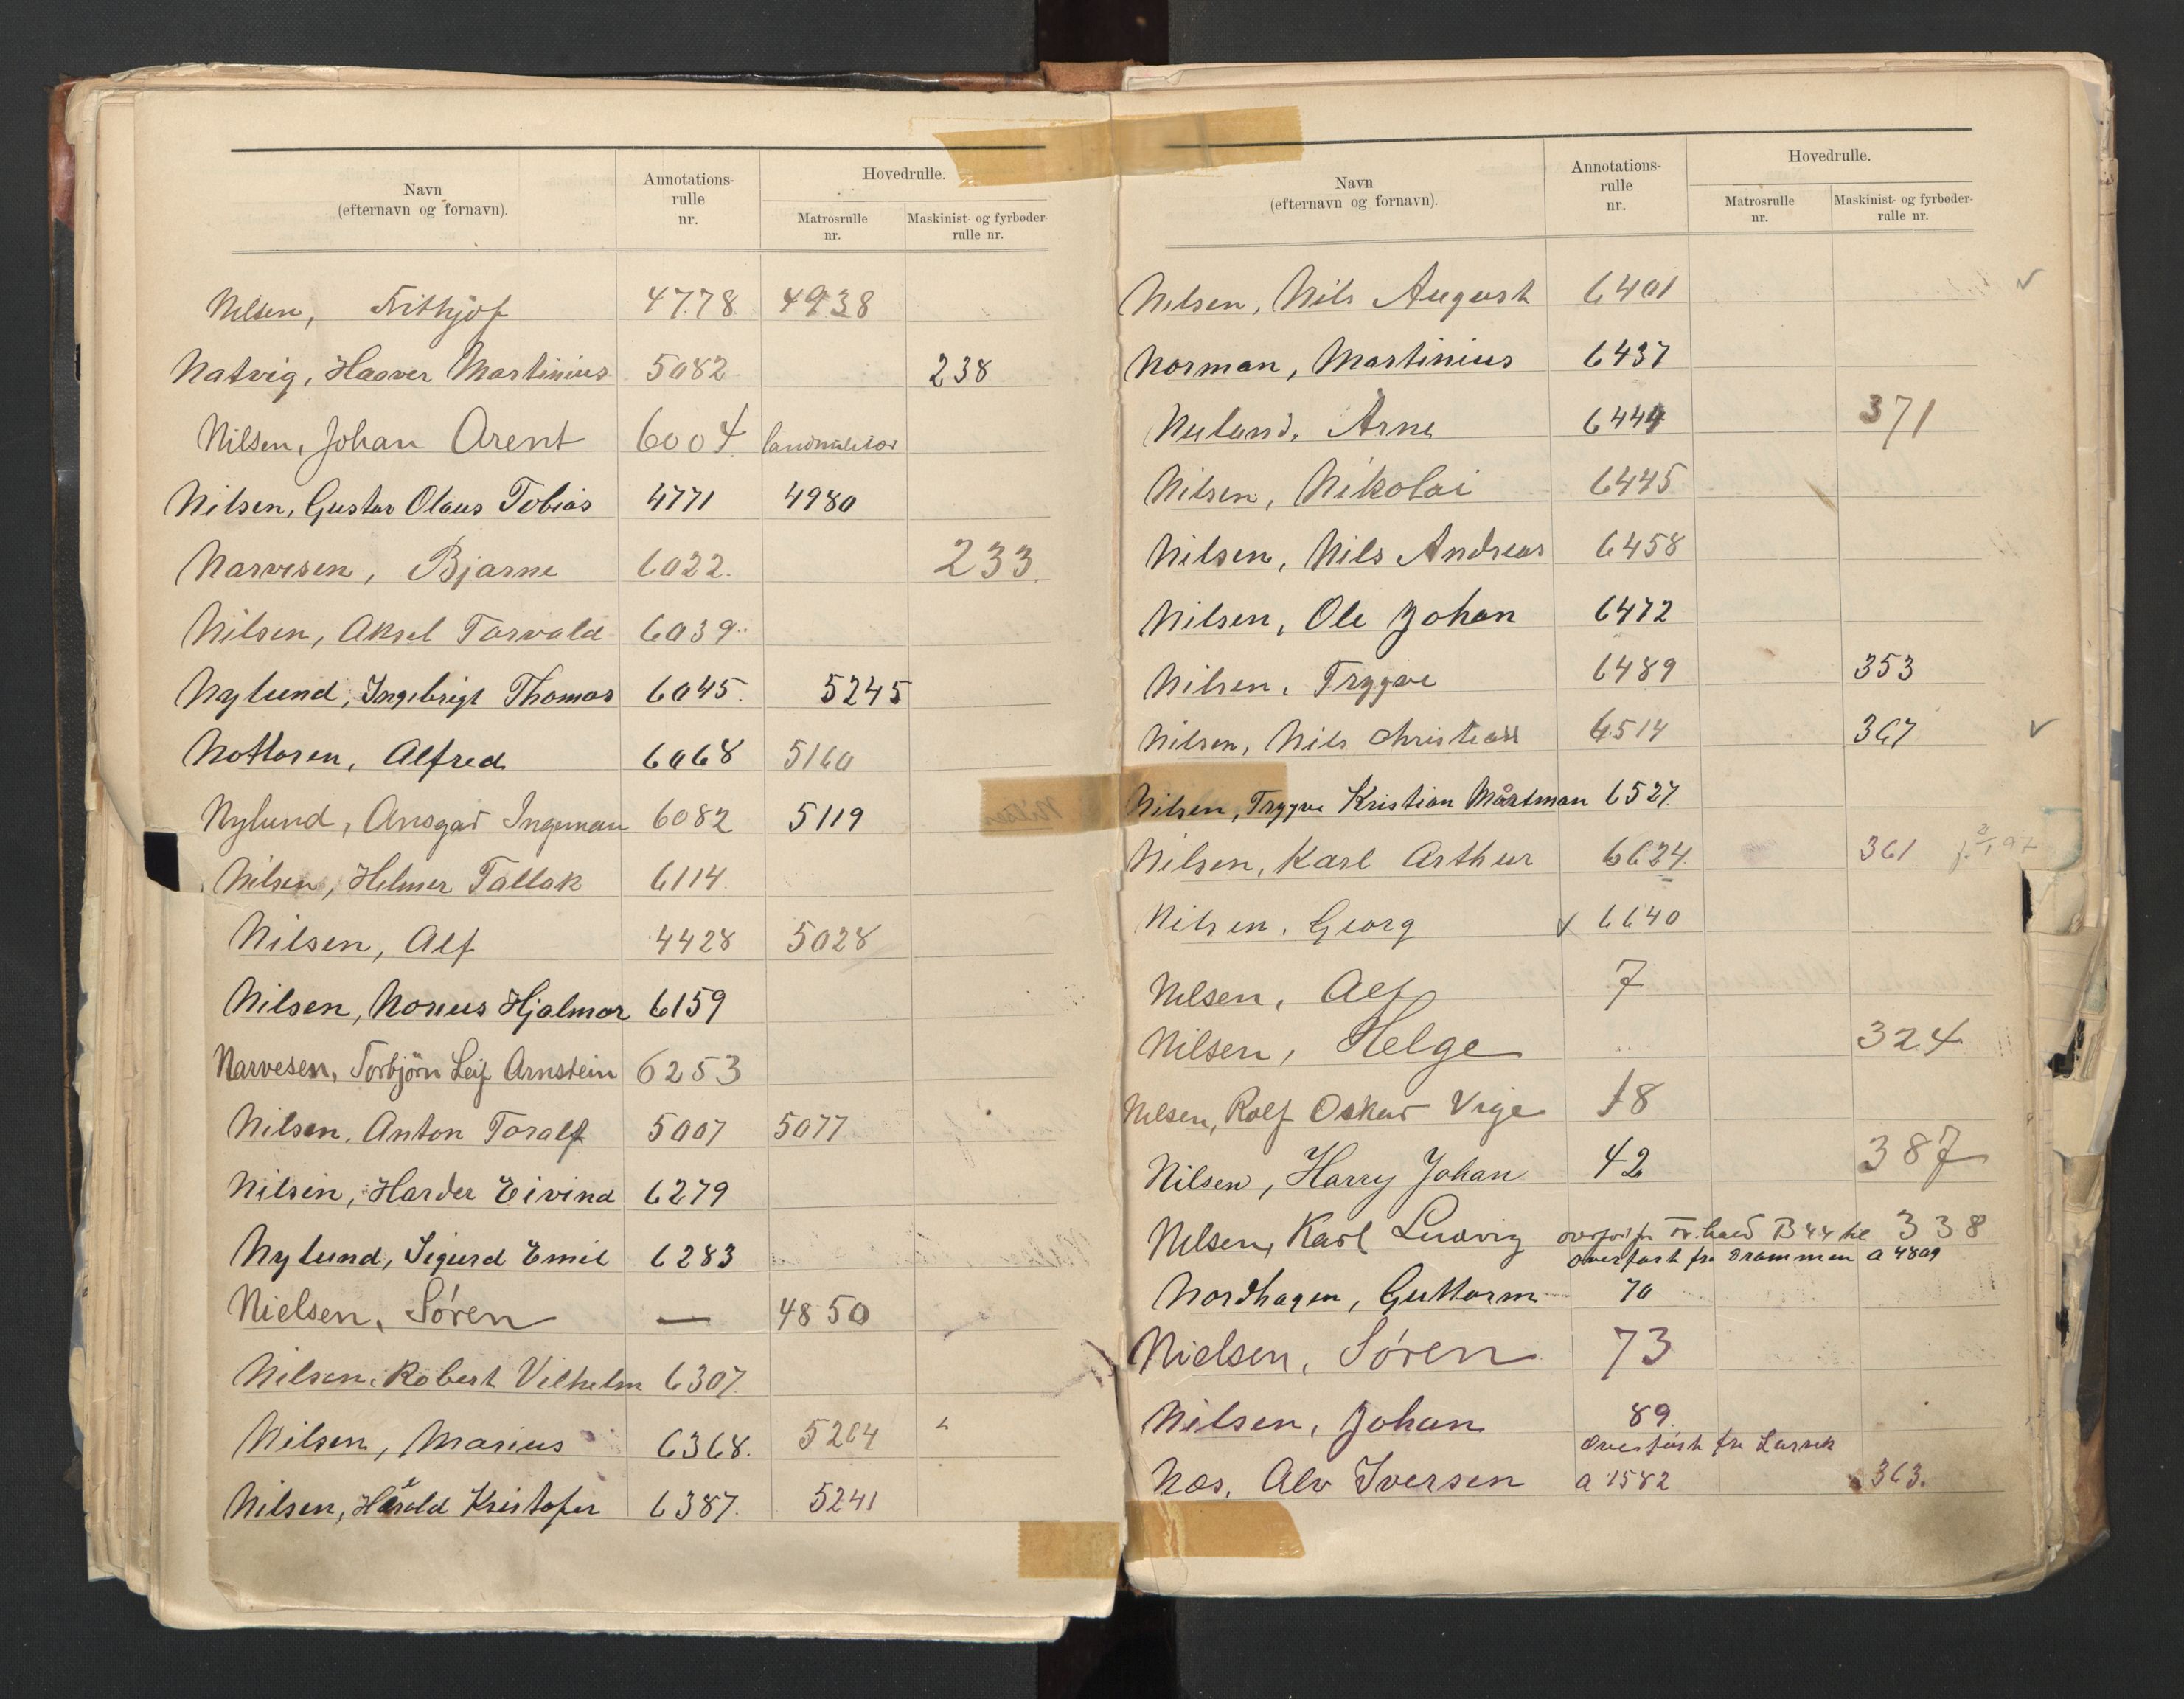 Navn
(efternavn og fornavn).
Annotations-
rulle
nr.
Hovedrulle.
Matrosrulle
nr.
Maskinist- og fyrbøder-
rulle nr.
Nilsen, Frithjof 4778. 4938
Natvig, Haaver Martinius 5082 238
Nilsen, Johan Arent 6004.
Nilsen, Gustav Olaus Tobias 4771 4980
Narvesen, Bjarne 6022. 233.
Nilsen, Aksel Torvald 6039.
Nylund, Ingebrigt Thomas 6045. 5245
Nottosen, Alfred 6068 5160
Nylund, Ansgar Ingeman 6082 5119
Nilsen, Helmer Tallak 6114.
Nilsen, Alf 4428 5028
Nilsen, Nonus Hjalmar 6159
Narvesen, Torbjörn Leif Arnstein 6253
Nilsen, Anton Toralf 5007 5077
Nilsen, Harder Eivind 6279
Nylund, Sigurd Emil 6283
Nielsen, Søren — 4850
Nilsen, Robert Vilhelm 6307.
Nilsen, Marius 6368. 5264
Nilsen, Harald Kristofer 6387. 5241
Navn
(efternavn og fornavn).
Annotations-
rulle
nr.
Hovedrulle.
Matrosrulle
nr.
Maskinist- og fyrbøder-
rulle nr.
Nilsen, Nils August 6401 ✓
Norman, Martinius 6437
Nuland, Arne 6444 371
Nilsen, Nikolai 6445
Nilsen, Nils Andreas 6458
Nilsen, Ole Johan 6472
Nilsen, Trygve 6489 353
Nilsen, Nils Christian 6514 367 ✓
Nilsen, Trygve Kristian Mårtman 6527.
Nilsen, Karl Arthur 6624. 361
Nilsen, Georg ✓ 6640
Nilsen, Alf 7
Nilsen, Helge 324
Nilsen, Rolf Oskar Vige 18
Nilsen, Harry Johan 42 387
Nilsen, Karl Ludvig B 44 338
overført fra Drammen a 4809
Nordhagen, Guttorm 70
Nielsen, Søren 73
Nilsen, Johan 89.
overført fra Larvik
Næs, Alv Iversen a 1582 363.